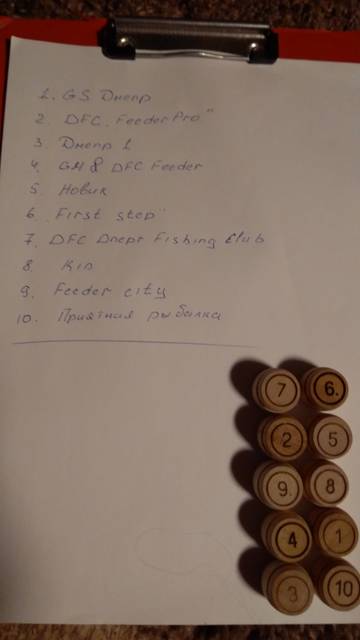 1. GS Днепр
2. DFC. FeederPro"
3. Днепр 1
4. GM & DFC Feeder
5. Новик
6. First step"
7. DFC Dnepr Fishing Club
8. Kin
9. Feeder city
10. Приятная рыбалка
7 6.
2 5
9. 8
4 1
3 10